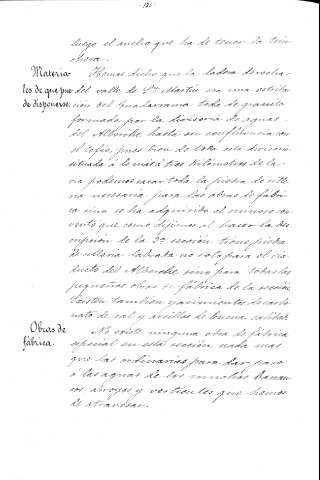 luego el ancho que ha de tener la trin
chera.
Materia- Hemos dicho que la ladera derecha
les de que pue- del valle de Sn. Martín era una estriba
de disponerse. ción del Guadarrama toda de granito
formada por la divisoria de aguas
del Alberche hasta su confluencia con
el Cofio, pues bien de toda esta divisoria
situada á lo más á tres kilómetros de la
via podemos sacar toda la piedra de sille
ria necesaria para las obras de fábri
ca sino se ha adquirido el ruinoso con
vento que como dijimos al hacer la des
cripción de la 3ª sección tiene piedra
de silleria labrada no solo para el via
ducto del Alberche sino para todas las
pequeñas obras de fábrica de la sección
Existen tambien yacimientos de carbo
nato de cal y arcillas de buena calidad.
Obras de No existe ninguna obra de fábrica
fábrica. especial en esta sección nada mas
que las ordinarias para dar paso
á las aguas de los muchos barran
cos, arroyos y vertientes que hemos
de atravesar.